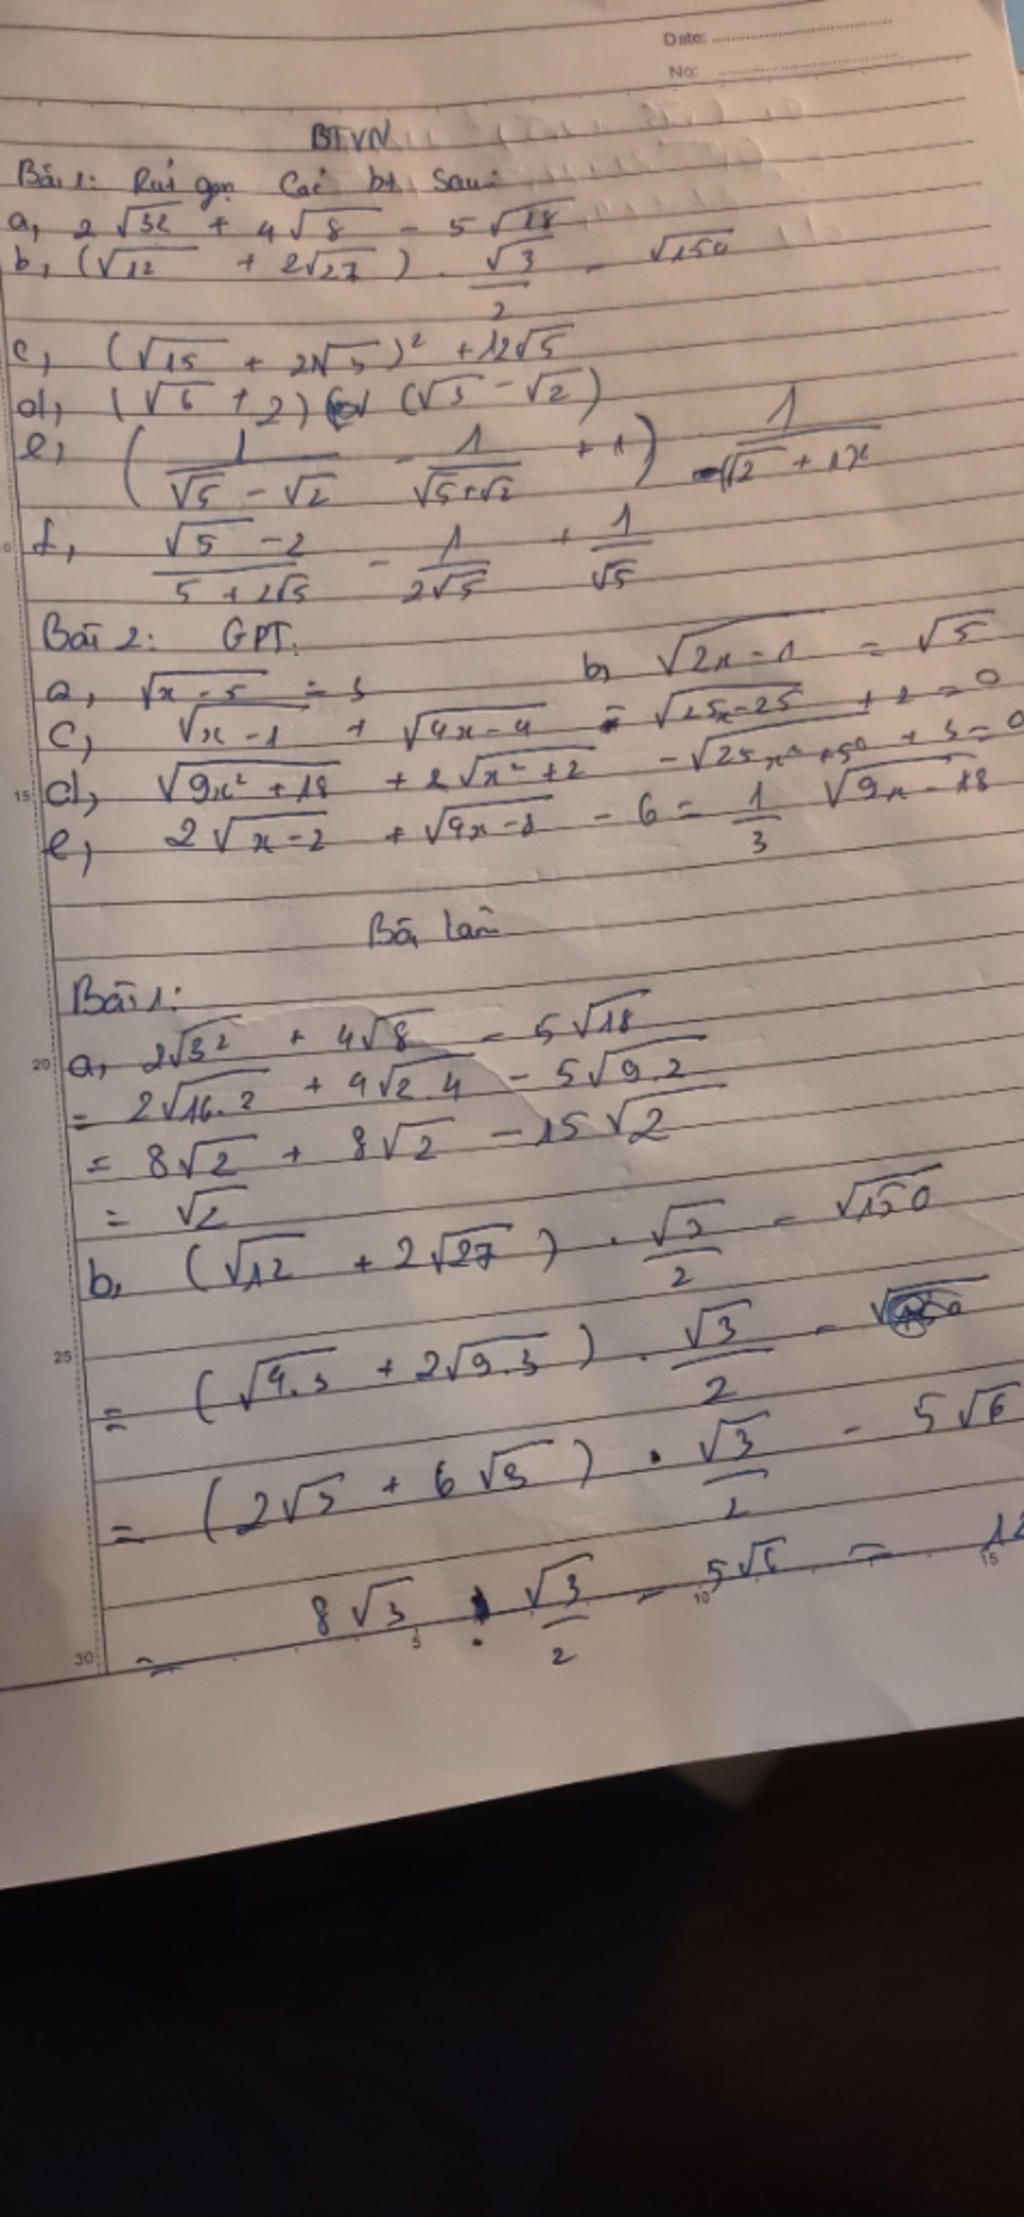 Date:
No:
BTVN
Bài 1: Rút gọn các bt sau:
a, 2√32 + 4√8 - 5√18
b, (√12 + 2√27) . √3/2 - √150
c, (√15 + 2√3)² + 12√5
d, (√6 + 2) (√3 - √2)
e, (1/(√5 - √2) - 1/(√5+√2) + 1) 1/(√2 + 1)²
f, (√5 - 2)/(5 + 2√5) - 1/(2√5) + 1/√5
Bài 2: GPT:
a, √(x - 5) = 3 b, √(2x - 1) = √5
c, √(x - 1) + √(4x - 4) - √(25x - 25) + 2 = 0
d, √(9x² + 18) + 2√(x² + 2) - √(25x² + 50) + 3 = 0
15
e, 2√(x - 2) + √(4x - 8) - 6 = 1/3 √(9x - 18)
Bài làm
Bài 1:
20
a, 2√32 + 4√8 - 5√18
= 2√16.2 + 4√2.4 - 5√9.2
= 8√2 + 8√2 - 15√2
= √2
b, (√12 + 2√27) . √3/2 - √150
25
= (√4.3 + 2√9.3) . √3/2 -
= (2√3 + 6√3) . √3/2 - 5√6
= 8√3 . √3/2 - 5√6 = 12
30 5 10 15